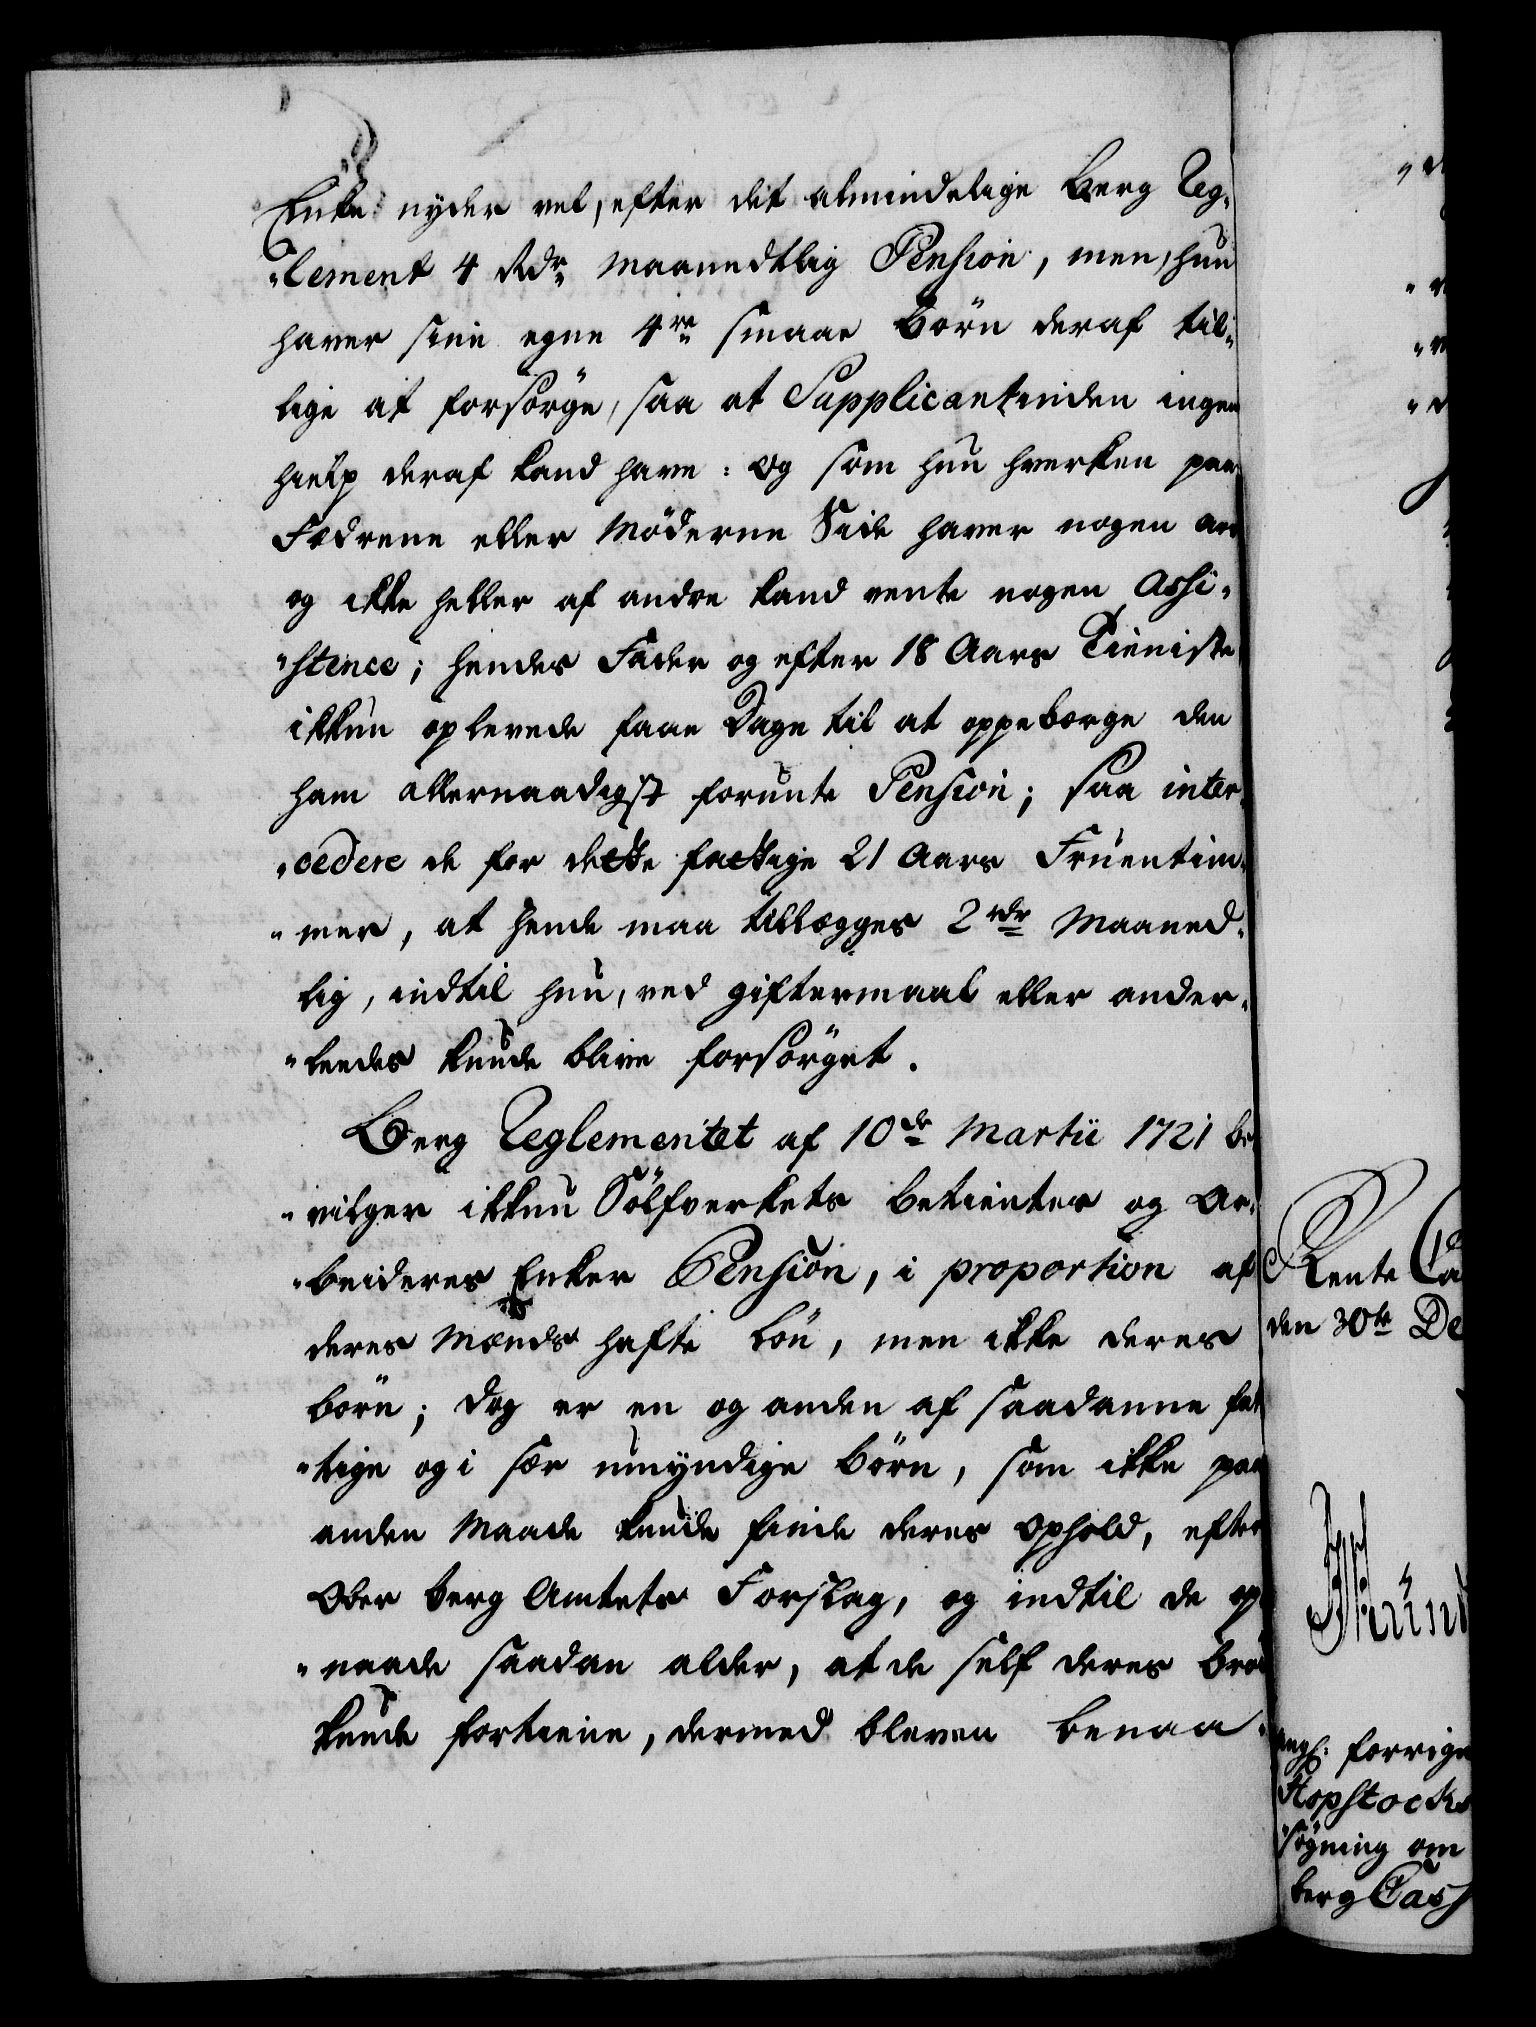 Enke nyder vel, efter det almindelige Berg Reg-
"lement 4 Rdr maanedtlig Pension, men, hun
haver sine egne 4re smaae Börn deraf til-
lige at forsörge, saa at Supplicantinden ingen
hielp deraf kand have: og som hun hverken paa
Fædrene eller Möderne Side haver nogen arv
og ikke heller af andre kand vente nogen Assi-
"stence; hendes Fader og efter 18 Aars Tieniste
ikkun oplevede faae Dage til at oppebærge den
ham allernaadigst forunte Pension; saa inter-
"cedere de for dette fattige 21 Aars Fruentim-
"mer, at hende maa tillægges 2 rdr Maaned-
lig, indtil hun, ved giftermaal eller ander-
"leedes kunde blive forsörget.
Berg Reglementet af 10de Martii 1721 be-
"vilger ikkun Sölfverkets betienters og Ar-
"beideres Enker Pension, i proportion af
deres Mænds hafte lön, men ikke deres
börn; dog er en og anden af saadanne fat
"tige og i sær umyndige börn, som ikke paa
anden Maade kunde finde deres ophold, efter
Ober berg Amtets Forslag, og indtil de op
"naade saadan alder, at de self deres bröd
kunde fortiene, dermed bleven benaa-
Rente Ca
den 30te De
angl: forrige
Hopstocks
"sögning om
berg Cass